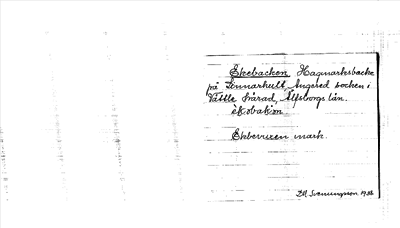 Ekebacken, Hagmarksbacke
på Linnarhult, Angered socken i
Vättle härad, Älfsborgs län.
èkəbakən
Ekbevuxen mark.
1933